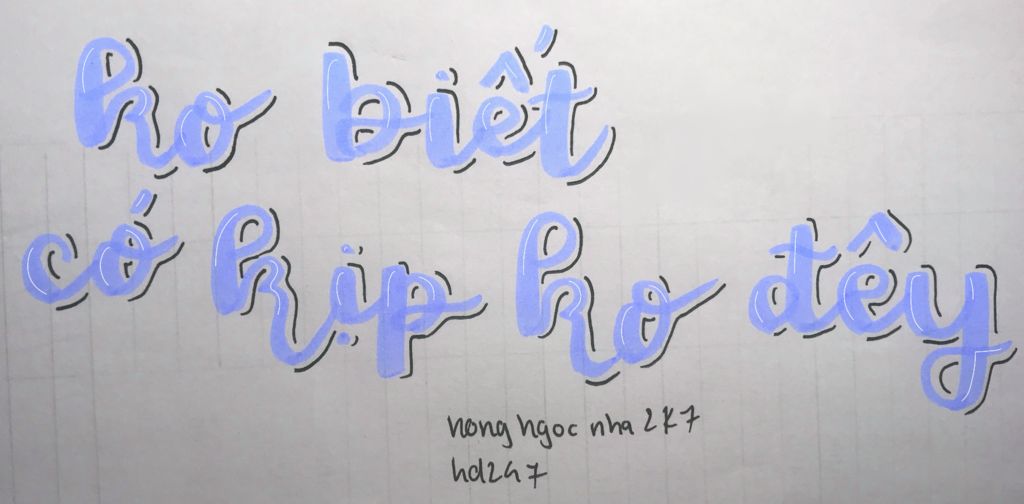 ko biết
có kịp ko đêy
nong ngoc nha 2K7
hd247